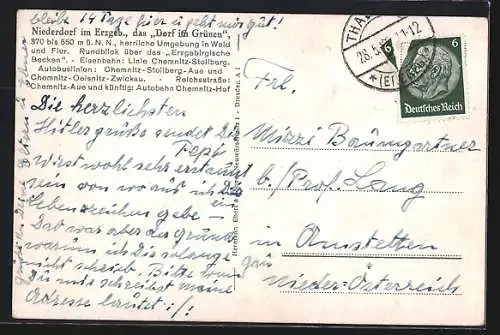 bleibe 14 Tage hier u geht mir gut!
Niederdorf im Erzgeb., das „Dorf im Grünen",
370 bis 550 m ü. N. N., herrliche Umgebung in Wald
und Flur. Rundblick über das „Erzgebirgische
Becken" - Eisenbahn: Linie Chemnitz-Stollberg.
Autobuslinien: Chemnitz-Stollberg-Aue und
Chemnitz-Oelsnitz-Zwickau. - Reichsstraße:
Chemnitz-Aue und künftig: Autobahn Chemnitz-Hof
Die herzlichsten
Hitlergrüße sendet Dir
Pepi
wirst wohl sehr erstaunt
sein von wo aus ich Dir
ein
Lebenszeichen gebe –
Das war aber der Grund
warum ich Dir solange
nicht schrieb. Bitte
Du mir schreibst meine
Adresse lautet :/!
THA
28.5. 11-12
* (ERZGEB.)
6 6
Deutsches Reich
Frl.
Mizzi Baumgartner
b./Prof. Lang
in Amstetten
gau
Nieder-Österreich